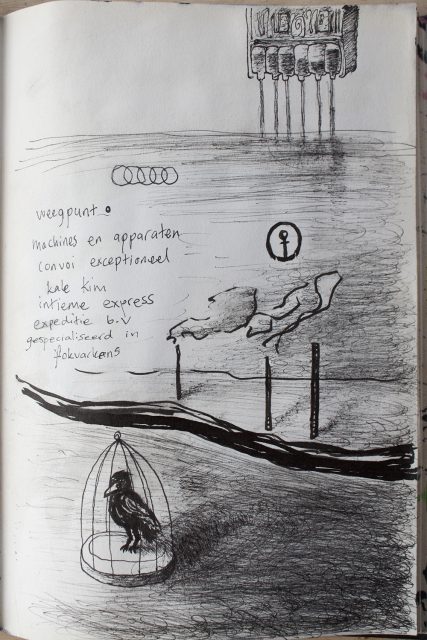 weegpunt
machines en apparaten
convoi exceptioneel
kale kim
intieme express
expeditie b.v
gespecialiseerd in
fokvarkens